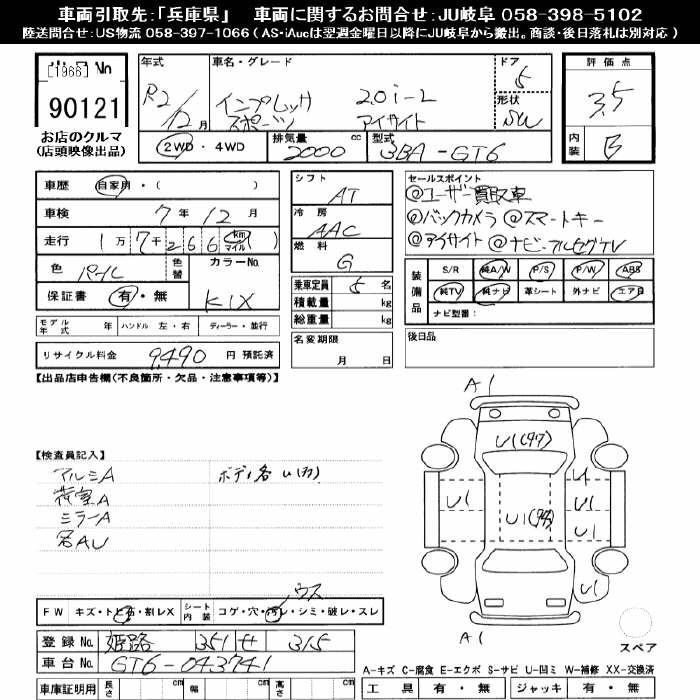 車両引取先:「兵庫県」 車両に関するお問合せ:JU岐阜 058-398-5102
陸送問合せ:US物流 058-397-1066 ( AS・iAucは翌週金曜日以降にJU岐阜から搬出。商談・後日落札は別対応 )
[1966] No
90121
お店のクルマ
(店頭映像出品)
年式 車名・グレード ドア 評価点
R2/12月 インプレッサ 2.0i-L 5 3.5
スポーツ アイサイト 形状 SW
2WD・4WD 排気量 2000 cc 型式 3BA-GT6 内装 B
車歴 自家用・( )
車検 7年12月
走行 1万7千266 km マイル ( )
色 パール 色替 カラーNo. K1X
保証書 有・無
モデル年式 年 ハンドル 左・右 ディーラー・並行
リサイクル料金 9,490 円 預託済
シフト AT
冷房 AAC
燃料 G
乗車定員 5 名
積載量 kg
総重量 kg
名変期限 月 日
セールスポイント
@ユーザー買取車
@バックカメラ @スマートキー
@アイサイト @ナビ・フルセグTV
装備品 S/R 純A/W P/S P/W ABS
純TV 純ナビ 革シート 外ナビ エアB
ナビ型番:
後日品
【出品店申告欄(不良箇所・欠品・注意事項等)】
【検査員記入】
アルミA ボディ各U(カ)
荷室A
ミラーA
各AU
A1
U1
U1
U1
U1
U1
A1
FW キズ・トビ石・割レX シート内装 コゲ・穴・汚レ・シミ・破レ・スレ
ウス
登録No. 姫路 351 せ 315
車台No. GT6-043741
車庫証明用 長さ cm 幅 cm 高さ cm
スペア
A-キズ C-腐食 E-エクボ S-サビ U-凹ミ W-補修 XX-交換済
工具 有・無 ジャッキ 有・無